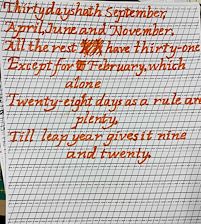 Thirty days hath September,
April, June and November,
All the rest have thirty-one
Except for February, which
alone
Twenty-eight days as a rule are
plenty,
Till leap year gives it nine
and twenty.